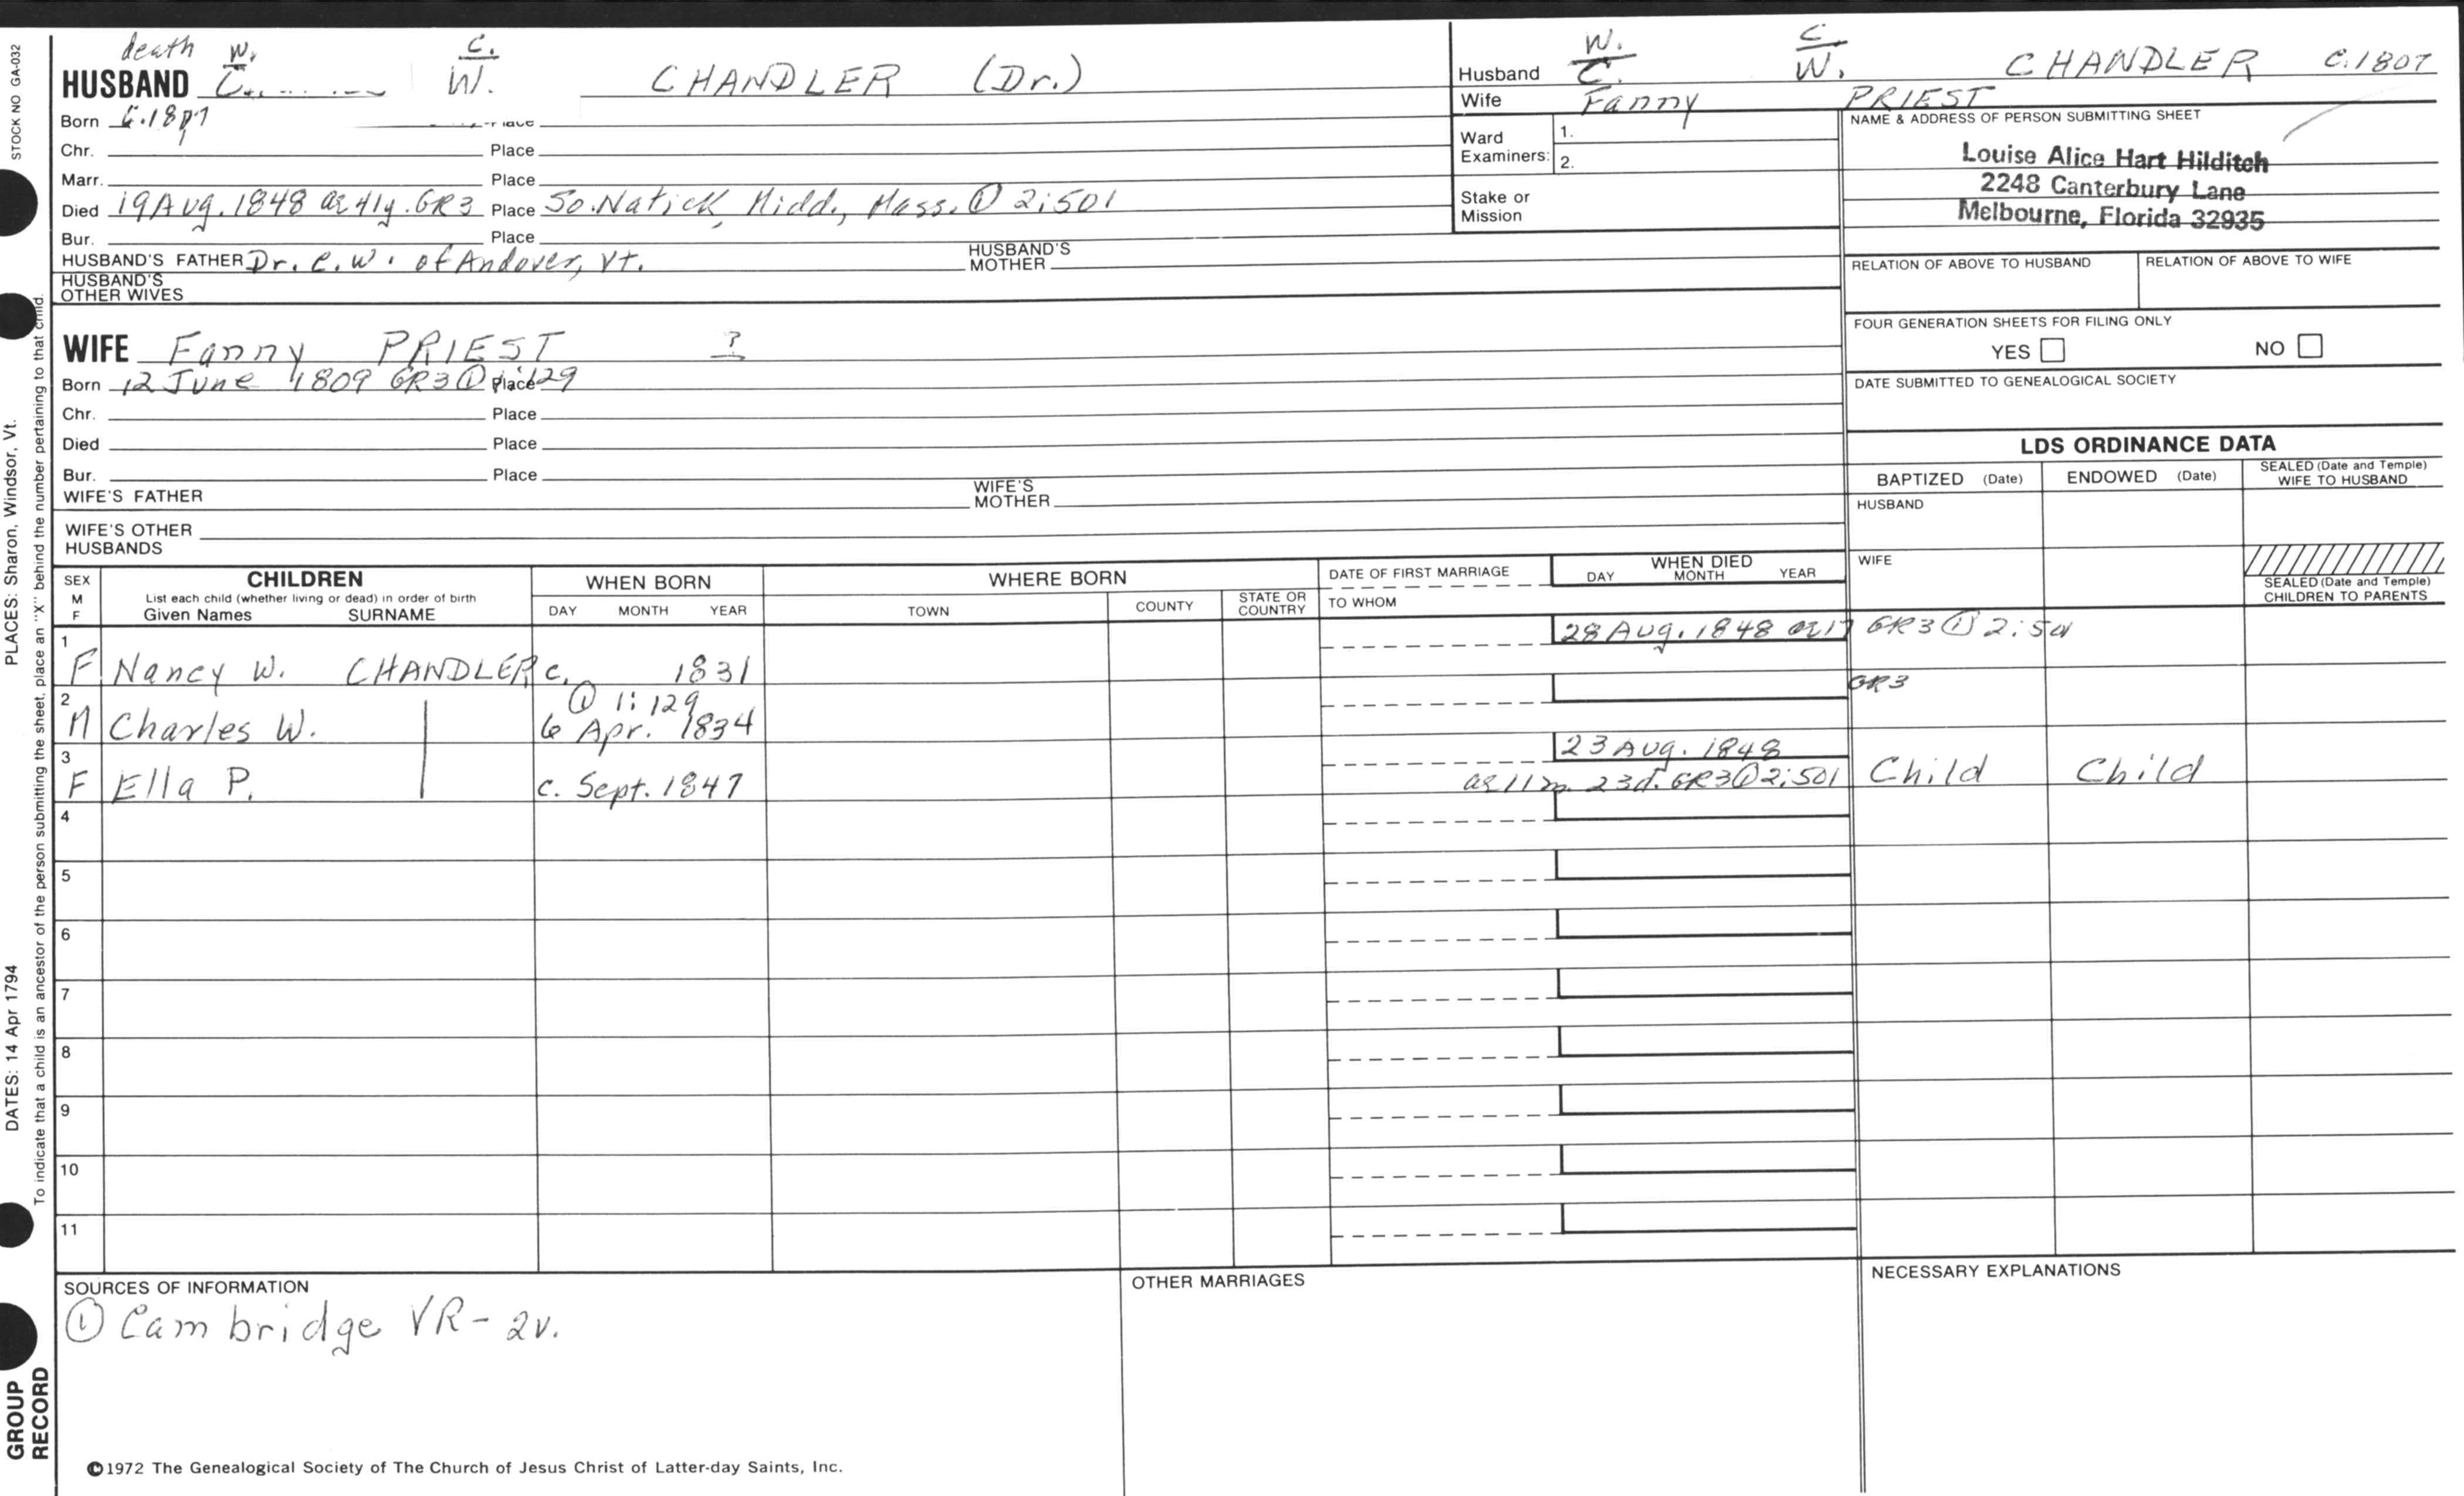 STOCK NO GA-032
PLACES: Sharon, Windsor, Vt.
DATES: 14 Apr 1794
To indicate that a child is an ancestor of the person submitting the sheet, place an "X" behind the number pertaining to that child.
GROUP
RECORD
death W. C.
HUSBAND C. W. CHANDLER (Dr.)
Born c.1807
Chr. Place
Marr. Place
Died 19 Aug. 1848 ae 41y. GR3 Place So. Natick, Midd., Mass. ① 2:501
Bur. Place
HUSBAND'S FATHER Dr. C. W. of Andover, Vt. HUSBAND'S MOTHER
HUSBAND'S
OTHER WIVES
WIFE Fanny PRIEST ?
Born 12 June 1809 GR3 ① 1:129 Place
Chr. Place
Died Place
Bur. Place
WIFE'S FATHER WIFE'S MOTHER
WIFE'S OTHER
HUSBANDS
W. C.
Husband C. W. CHANDLER c.1807
Wife Fanny PRIEST
Ward
Examiners: 1.
2.
Stake or
Mission
NAME & ADDRESS OF PERSON SUBMITTING SHEET
Louise Alice Hart Hilditch
2248 Canterbury Lane
Melbourne, Florida 32935
RELATION OF ABOVE TO HUSBAND RELATION OF ABOVE TO WIFE
FOUR GENERATION SHEETS FOR FILING ONLY
YES NO
DATE SUBMITTED TO GENEALOGICAL SOCIETY
LDS ORDINANCE DATA
BAPTIZED (Date) ENDOWED (Date) SEALED (Date and Temple)
WIFE TO HUSBAND
HUSBAND
WIFE
SEALED (Date and Temple)
CHILDREN TO PARENTS
SEX
M
F
CHILDREN
List each child (whether living or dead) in order of birth
Given Names SURNAME
WHEN BORN
DAY MONTH YEAR
WHERE BORN
TOWN COUNTY STATE OR COUNTRY
DATE OF FIRST MARRIAGE
TO WHOM
WHEN DIED
DAY MONTH YEAR
1 28 Aug. 1848 ae 17 GR3 ① 2:501
F Nancy W. CHANDLER c. 1831
2 ① 1:129 GR3
M Charles W. 6 Apr. 1834
3 23 Aug. 1848
F Ella P. c. Sept. 1847 ae 11m. 23d. GR3 ① 2:501 Child Child
4
5
6
7
8
9
10
11
SOURCES OF INFORMATION
① Cambridge VR - 2v.
OTHER MARRIAGES
NECESSARY EXPLANATIONS
©1972 The Genealogical Society of The Church of Jesus Christ of Latter-day Saints, Inc.